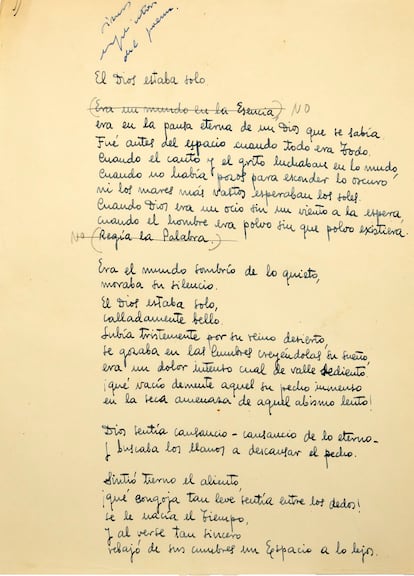 del poema.
El Dios estaba solo.
(Era un mundo en la Esencia,) NO
era en la pausa eterna de un Dios que se sabía.
Fué antes del espacio cuando todo era Todo.
Cuando el canto y el grito luchaban en lo mudo,
Cuando no había pozos para esconder lo oscuro
ni los mares más vastos esperaban los soles.
Cuando Dios era un ocio sin un viento a la espera,
cuando el hombre era polvo sin que polvo existiera.
No (Regía la Palabra.)
Era el mundo sombrío de lo quieto,
moraba su silencio.
El Dios estaba solo,
calladamente bello.
Subía tristemente por su reino desierto,
se gozaba en las cumbres creyéndolas su sueño,
era un dolor intenso cual de valle sediento
¡qué vacío demente aquel su pecho inmenso
en la seca amenaza de aquel abismo lento!
Dios sentía cansancio - cansancio de lo eterno -
y buscaba los llanos a descansar el pecho.
Sintió tierno el aliento,
¡qué congoja tan leve sentía entre los dedos!
se le nacía el Tiempo,
y al verse tan sincero
rebajó de sus cumbres un Espacio a lo lejos.